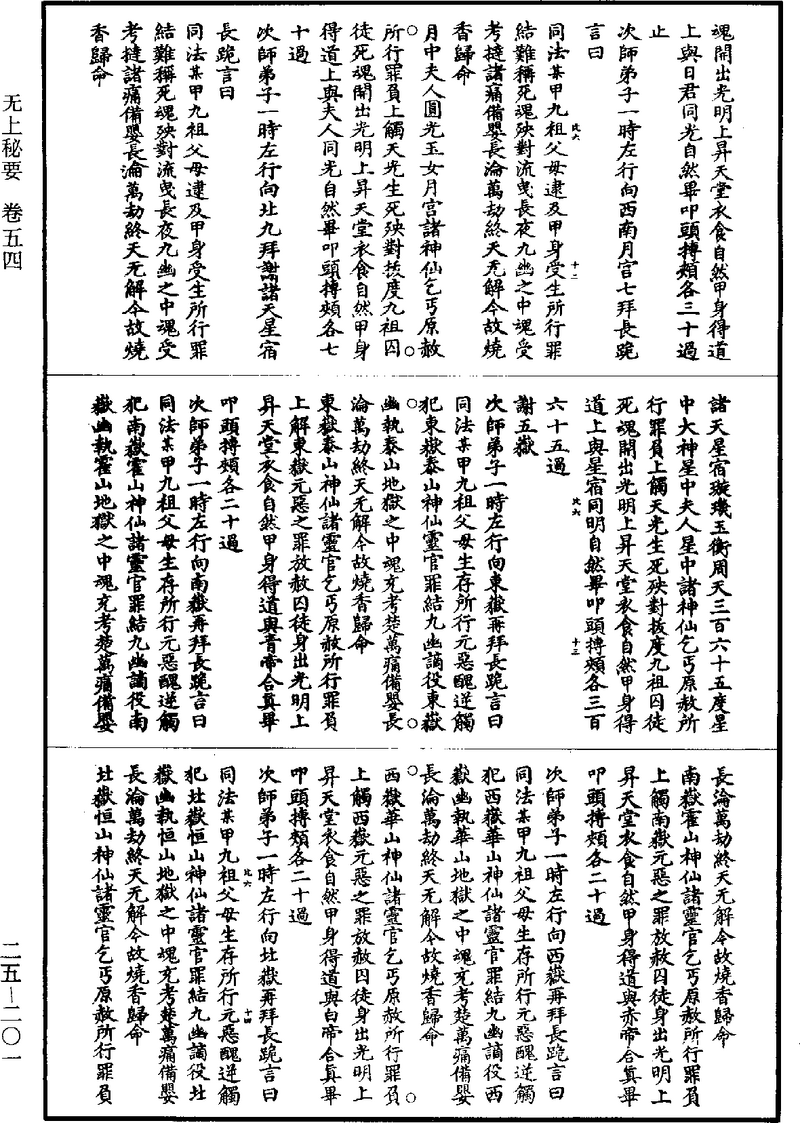 魂開出光明上昇天堂衣食自然甲身得道
上與日君同光自然畢叩頭搏頰各三十過
止
次師弟子一時左行向西南月宮七拜長跪
言曰
同法某甲九祖父母逮及甲身受生所行罪
結難稱死魂殃對流曳長夜九幽之中魂受
考撻諸痛備嬰長淪萬劫終天无解今故燒
香歸命
月中夫人圓光玉女月宮諸神仙乞丐原赦
所行罪負上觸天光生死殃對拔度九祖囚
徒死魂開出光明上昇天堂衣食自然甲身
得道上與夫人同光自然畢叩頭搏頰各七
十過
次師弟子一時左行向北九拜謝諸天星宿
長跪言曰
同法某甲九祖父母逮及甲身受生所行罪
結難稱死魂殃對流曳長夜九幽之中魂受
考撻諸痛備嬰長淪萬劫終天无解今故燒
香歸命
諸天星宿璇璣玉衡周天三百六十五度星
中大神星中夫人星中諸神仙乞丐原赦所
行罪負上觸天光生死殃對拔度九祖囚徒
死魂開出光明上昇天堂衣食自然甲身得
道上與星宿同明自然畢叩頭搏頰各三百
六十五過
謝五嶽
次師弟子一時左行向東嶽再拜長跪言曰
同法某甲九祖父母生存所行元惡醜逆觸
犯東嶽泰山神仙靈官罪結九幽謫役東嶽
幽執泰山地獄之中魂充考楚萬痛備嬰長
淪萬劫終天无解今故燒香歸命
東嶽泰山神仙諸靈官乞丐原赦所行罪負
上解東嶽元惡之罪放赦囚徒身出光明上
昇天堂衣食自然甲身得道與青帝合真畢
叩頭搏頰各二十過
次師弟子一時左行向南嶽再拜長跪言曰
同法某甲九祖父母生存所行元惡醜逆觸
犯南嶽霍山神仙諸靈官罪結九幽謫役南
嶽幽執霍山地獄之中魂充考楚萬痛備嬰
長淪萬劫終天无解今故燒香歸命
南嶽霍山神仙諸靈官乞丐原赦所行罪負
上觸南嶽元惡之罪放赦囚徒身出光明上
昇天堂衣食自然甲身得道與赤帝合真畢
叩頭搏頰各二十過
次師弟子一時左行向西嶽再拜長跪言曰
同法某甲九祖父母生存所行元惡醜逆觸
犯西嶽華山神仙諸靈官罪結九幽謫役西
嶽幽執華山地獄之中魂充考楚萬痛備嬰
長淪萬劫終天无解今故燒香歸命
西嶽華山神仙諸靈官乞丐原赦所行罪負
上觸西嶽元惡之罪放赦囚徒身出光明上
昇天堂衣食自然甲身得道與白帝合真畢
叩頭搏頰各二十過
次師弟子一時左行向北嶽再拜長跪言曰
同法某甲九祖父母生存所行元惡醜逆觸
犯北嶽恒山神仙諸靈官罪結九幽謫役北
嶽幽執恒山地獄之中魂充考楚萬痛備嬰
長淪萬劫終天无解今故燒香歸命
北嶽恒山神仙諸靈官乞丐原赦所行罪負
无上秘要 卷五四
二五—二〇一